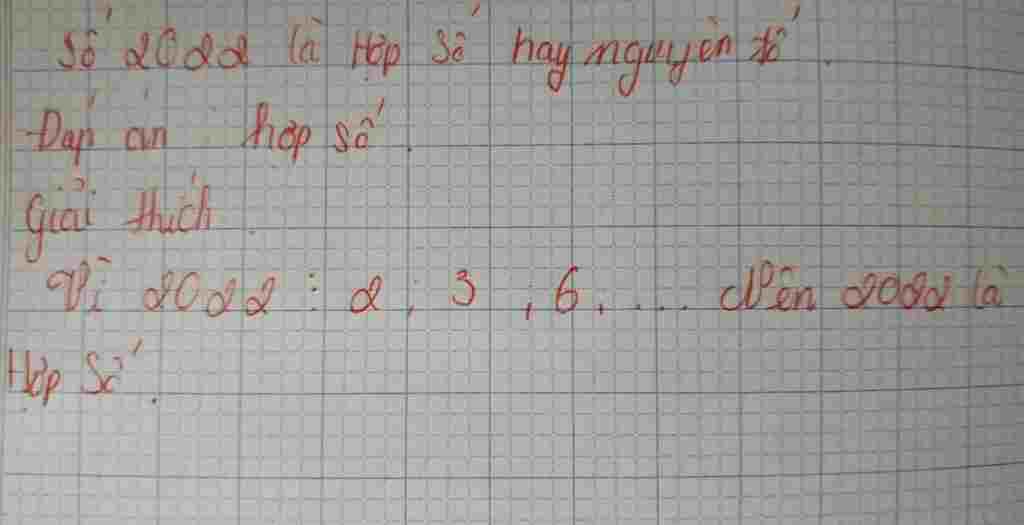 Số 2022 là Hợp số hay nguyên tố.
Đáp án : hợp số.
Giải thích.
Vì 2022 ⋮ 2; 3 ; 6. ... Nên 2022 là
Hợp Số.